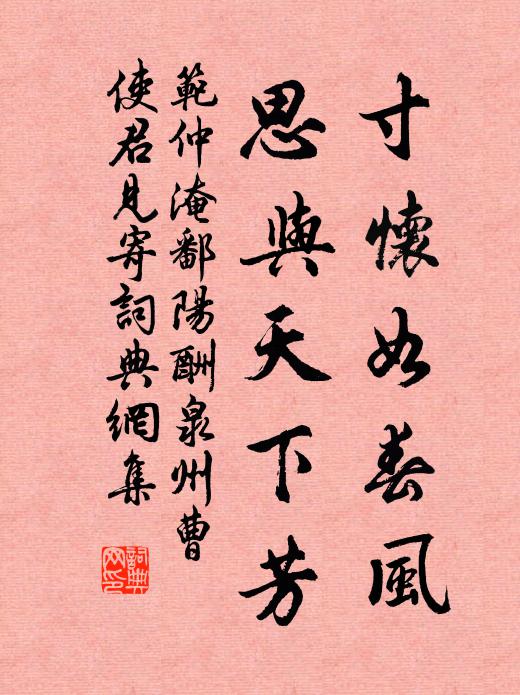 寸懷如春風
思與天下芳
範仲淹鄱陽酬泉州曹
使君見寄詞典網集
詞典
网印